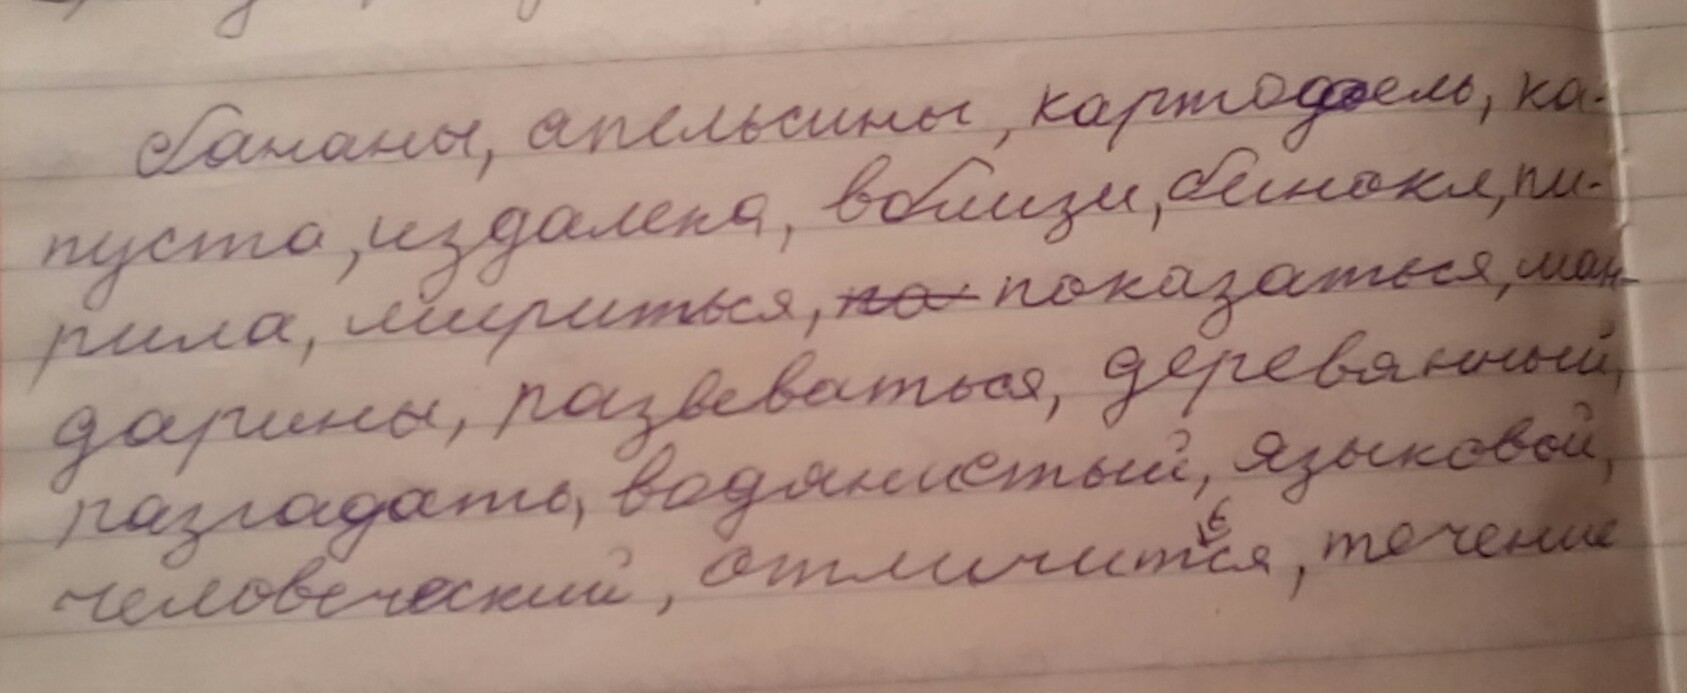 бананы, апельсины, картофель, ка-
пуста, издалека, вблизи, бинокл, пи-
рила, мириться, показаться, ман-
дарины, развеваться, деревянный,
разгадать, водянистый, языковой,
человеческий, отличиться, течение